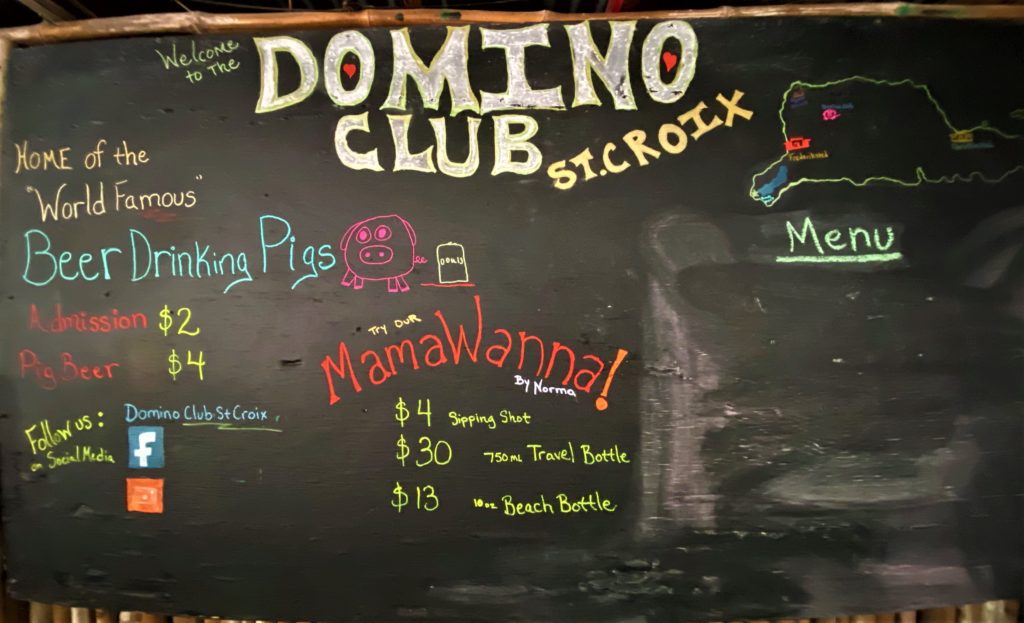 Welcome
to the
DOMINO
CLUB
ST. CROIX
HOME of the
"World Famous"
Beer Drinking Pigs
Admission $2
Pig Beer $4
Follow us:
on Social Media
Domino Club St Croix
f
TRY OUR
MamaWanna!
By Norma
$4 Sipping Shot
$30 750ML Travel Bottle
$13 10oz Beach Bottle
Frederiksted
Menu